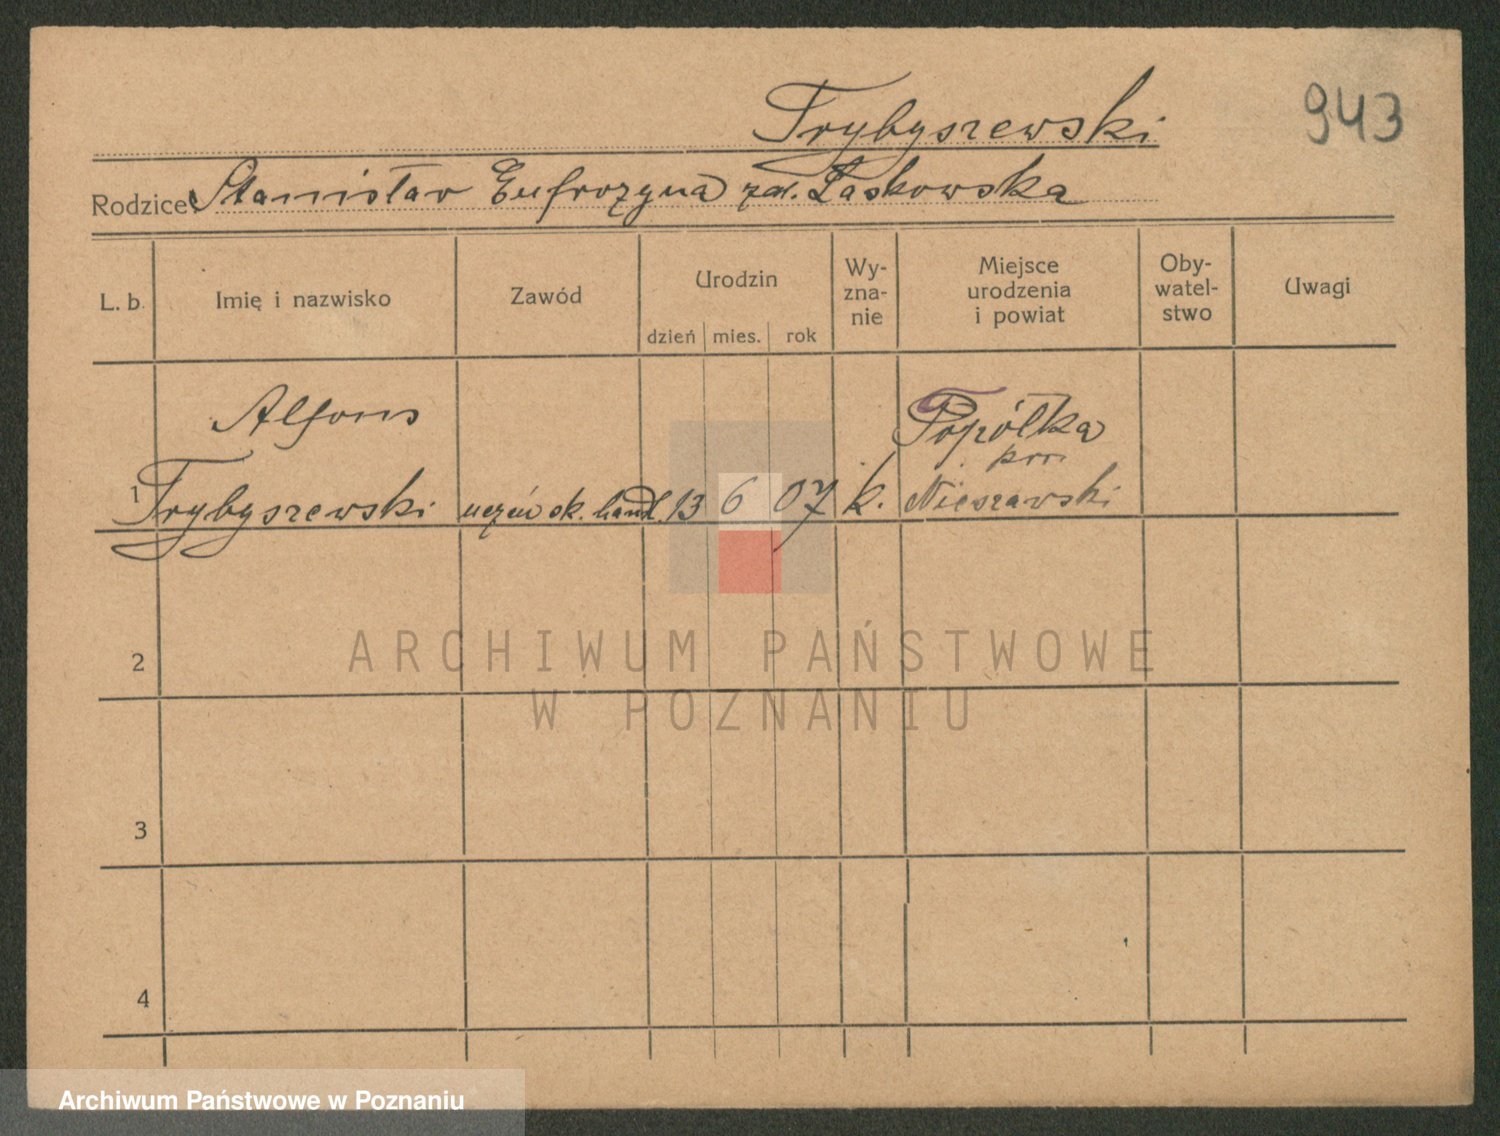 Trybyszewski
943
Rodzice: Stanisław Eufrozyna zd. Laskowska
L. b. Imię i nazwisko Zawód Urodzin dzień mies. rok Wy-zna-nie Miejsce urodzenia i powiat Oby-watel-stwo Uwagi
Alfons
1 Trybyszewski uczeń sk. handl. 13 6 07 k. Topólka
pow
Nieszawski
2
3
4
ARCHIWUM PAŃSTWOWE
W POZNANIU
Archiwum Państwowe w Poznaniu